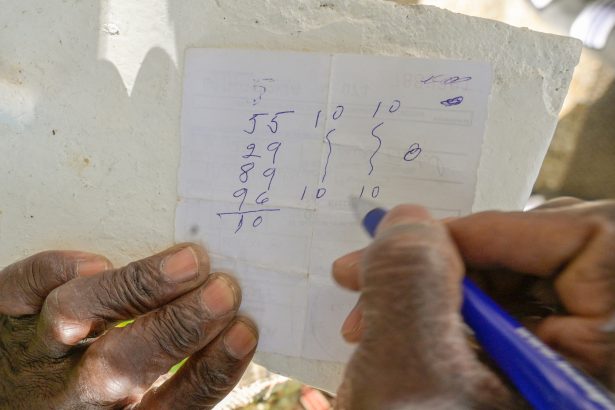 55 10 10
29
89
96 10 10
10